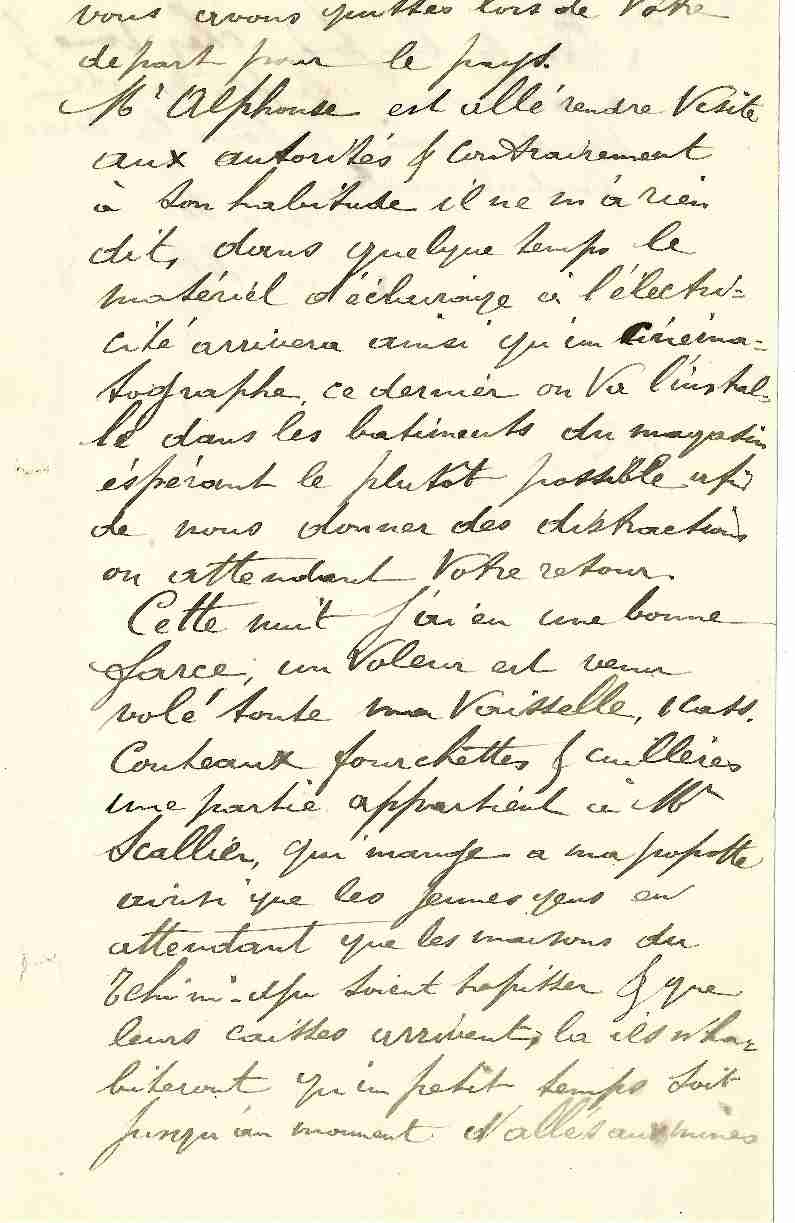 vous avons quittés lors de Votre
depart pour le pays.
Mr Alphonse est allé rendre Visite
aux autorités & contrairement
à son habitude il ne m'à rien
dit, dans quelque temps le
matériel d'éclairage à l'électri=
cité arrivera ainsi qu'un cinéma=
tographe, ce dernier on Va l'instal=
lé dans les batiments du magasin
éspérant le plutôt possible afin
de nous donner des distractions
en attendant Votre retour.
Cette nuit j'ai eu une bonne
farce, un Voleur est venu
volé toute ma Vaisselle,
Couteaux fourchettes & cuillères
une partie appartient à Mr
Scallier, qui mange a ma popotte
ainsi que les jeunes gens en
attendant que les maisons du
soient tapisser & que
leurs caisses arrivent, la ils n'ha=
biteront qu'un petit temps soit
jusqu'au moment d'allés aux mines